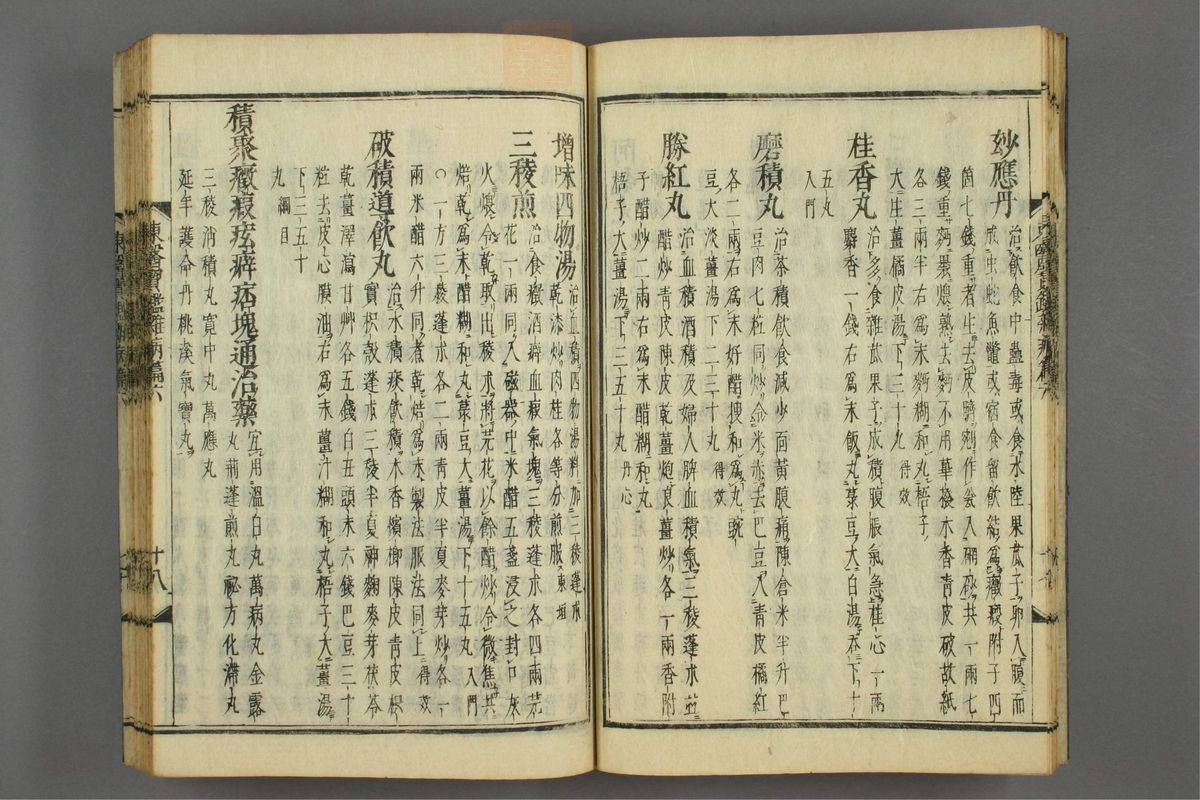 妙應丹治飮食中蟲毒或食水陸果瓜子卵入腹而
成虫蛇魚鼈或宿食留飮結爲癥瘕附子四
箇七錢重者生去皮臍剜作瓮入硇砂共一兩七
錢重麪裹煨熟去麪不用蓽撥木香靑皮破故紙
各三兩半右爲末麪糊和丸梧子
大生薑橘皮湯下三十丸得效
桂香丸治多食雜瓜果子成積腹脹氣急桂心一兩
麝香一錢右爲末飯丸菉豆大白湯呑下十
五丸
入門
磨積丸治茶積飮食減少面黃腹痛陳倉米半升巴
豆肉七粒同炒令米赤去巴豆入靑皮橘紅
各二兩右爲末好醋搜和爲丸豌
豆大淡薑湯下二三十丸得效
勝紅丸治血積酒積及婦人脾血積氣三稜蓬朮並
醋炒靑皮陳皮乾薑炮良薑炒各一兩香附
子醋炒二兩右爲末醋糊和丸
梧子大薑湯下三五十丸丹心
增味四物湯治血積四物湯料加三稜蓬朮
乾漆炒肉桂各等分煎服東垣
三稜煎治食癥酒癖血瘕氣塊三稜蓬朮各四兩芫
花一兩同入磁器中米醋五盞浸之封口灰
火煨令乾取出稜朮將芫花以餘醋炒令微焦共
焙乾爲末醋糊和丸菉豆大薑湯下十五丸入門
○一方三稜蓬朮各二兩靑皮半夏麥芽炒各一
兩米醋六升同煮乾焙爲末製法服法同上得效
破積導飮丸治水積痰飮積木香檳榔陳皮靑皮枳
實枳殼蓬朮三稜半夏神麴麥芽茯苓
乾薑澤瀉甘艸各五錢白丑頭末六錢巴豆三十
粒去皮心膜油右爲末薑汁糊和丸梧子大薑湯
下三五十
丸綱目
積聚癥瘕痃癖痞塊通治藥宜用溫白丸萬病丸金露
丸荊蓬煎丸祕方化滯丸
三稜消積丸寬中丸萬應丸
延年護命丹桃溪氣寶丸
東醫寶鑑雜病篇六
十八